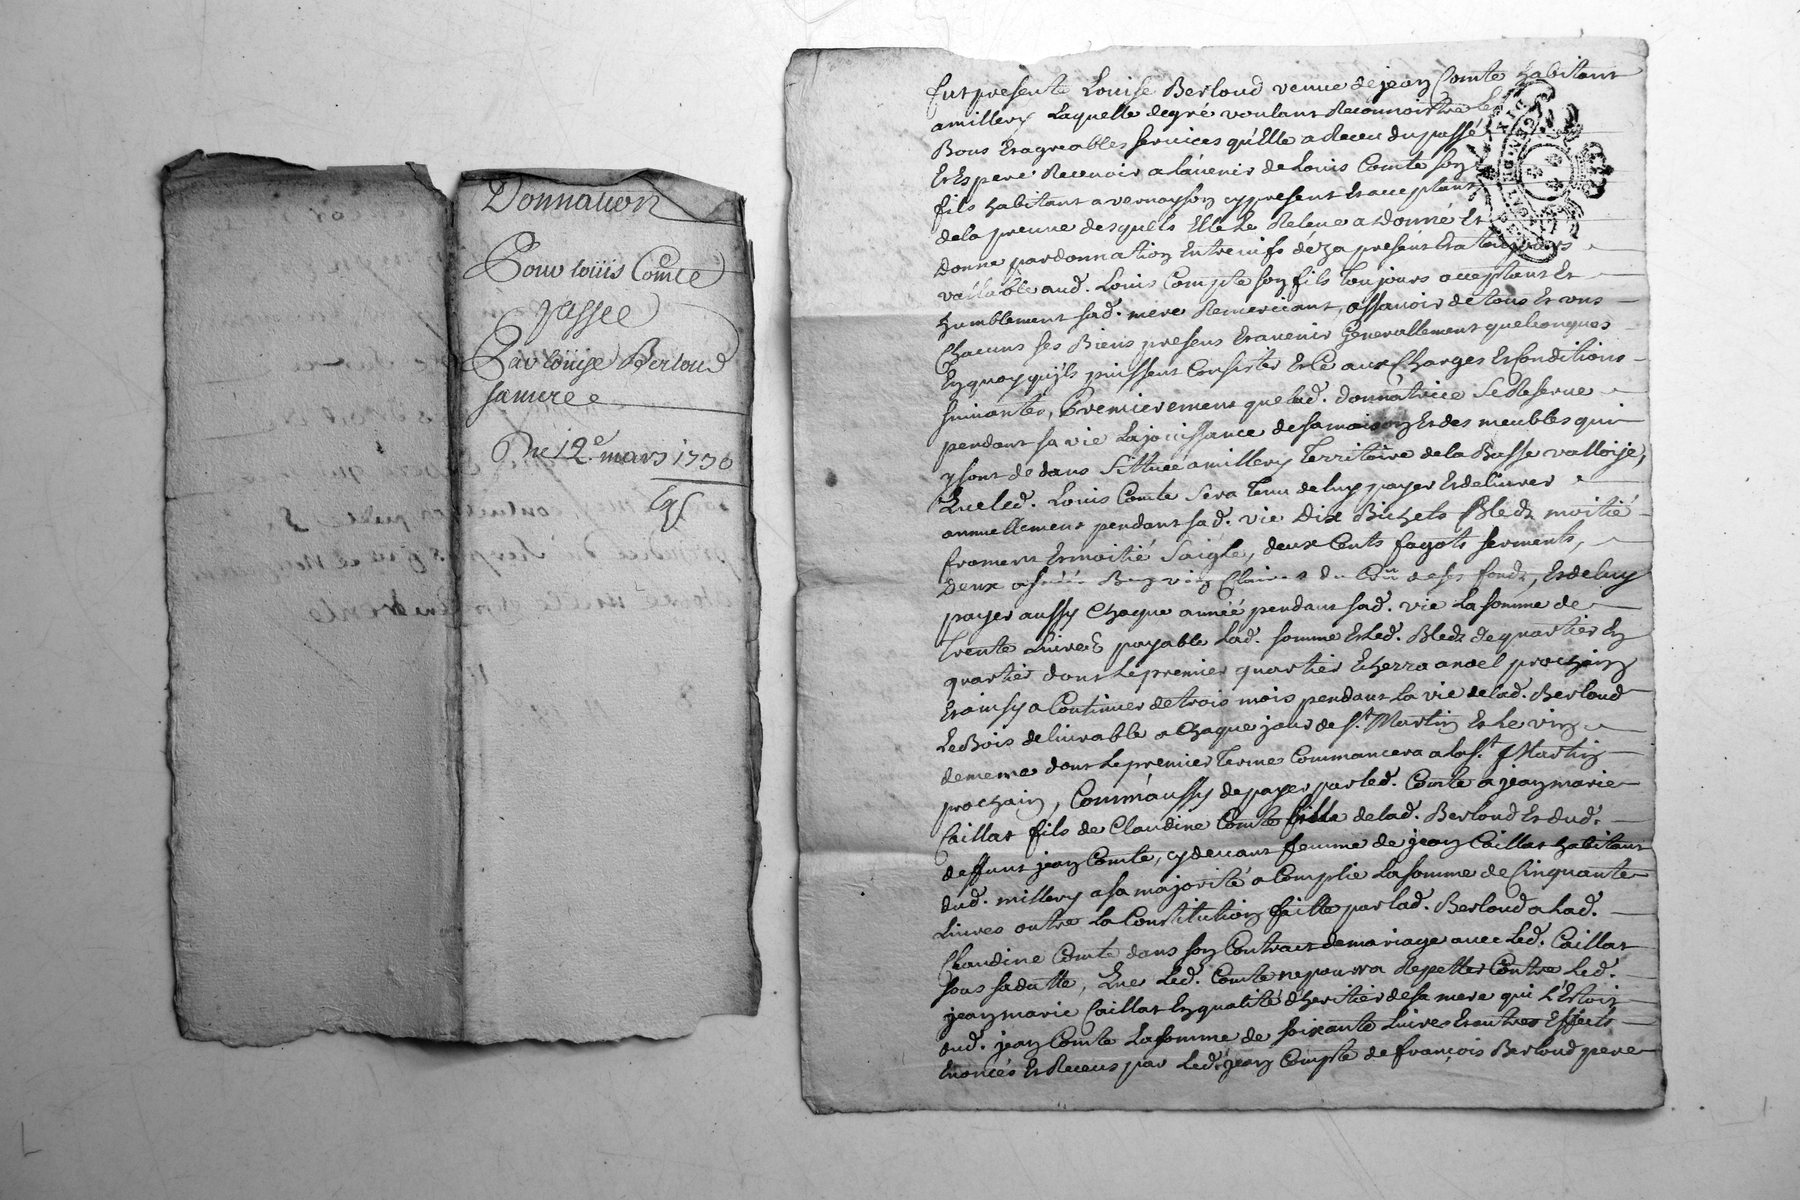 Donnation
Pour louis Comte
passée
Par louise Berloud
sa mere
Du 12e. mars 1736
Fut presente Louise Berloud veuve de jean Comte habitant
a millery Laquelle de gré voulant Reconnoistre les
Bons Et agreables services qu'Elle a Receu du passé
Et Espere Recevoir a L'avenir de Louis Comte son
fils habitant a vernayson cy present Et acceptant
de la preuve desquels Elle Le Releve a Donné Et
Donne par donnation Entre vifs déja présent Et a toujours
vallable aud. Louis Compte son fils Toujours acceptant Et
humblement sad. mere Remerciant, assavoir de tous Et uns
Chacuns ses Biens presens Et avenir Generallement quelconques
En quoy qu'ils puissent Consister Et Ce aux Charges Et Conditions
suivantes, Premierement que lad. donnatrice se Reserve
pendant sa vie La jouissance de sa maison Et des meubles qui
y sont de dans Sittuée a millery Territoire de la Basse valloise,
Que led. Louis Comte sera Tenu de luy payer Et delivrer
annuellement pendant sad. vie Dix Bichets Bleds moitié
froment Et moitié Saigle, deux Cents fagots serments,
Deux vin Clairet du de ses fonds, Et de luy
payer aussy Chaque année pendant sad. vie La somme de
Trente Livres payable Lad. somme Et Led. Bleds de quartier En
quartier dont Le premier quartier Echerra a noel prochain
Et ainsy a Continuer de trois mois pendant la vie de lad. Berloud
Le Bois delivrable a Chaque jour de St. Martin Et Le vin
de meme dont Le premier Terme Commancera a la St. Martin
prochain, Comm'aussy de payer par led. Comte a jean marie
Caillat fils de Claudine Comte fille de lad. Berloud Et dud.
deffunt jean Comte, cy devant femme de jean Caillat habitant
dud. millery a sa majorité a Complie La somme de Cinquante
Livres outre La Constitution faitte par lad. Berloud a Lad.
Claudine Comte dans son Contract de mariage avec Led. Caillat
sous sa datte, Que Led. Comte ne pourra Repetter Contre Led.
jean marie Caillat En qualité d'heritier de sa mere qui L'Etoit
dud. jean Comte La somme de soixante Livres Et autres Effects
Enoncés Et Receus par Led. jean Compte de françois Berloud pere